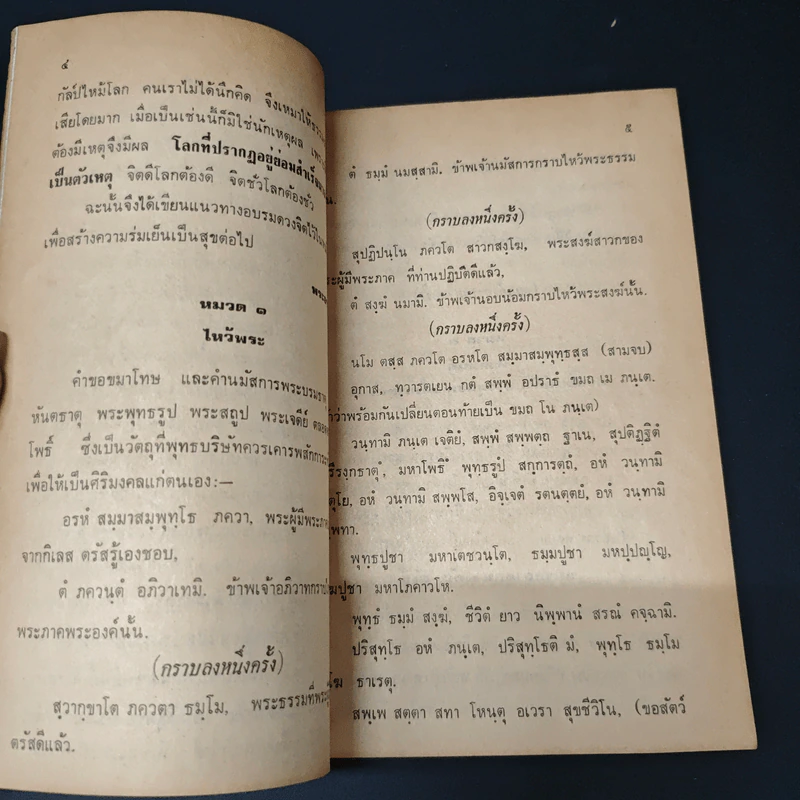 ๔
กัลป์ไหม้โลก คนเราไม่ได้นึกคิด จึงเหมาให้
เสียโดยมาก เมื่อเป็นเช่นนี้ก็มิใช่นักเหตุผล
ต้องมีเหตุจึงมีผล โลกที่ปรากฏอยู่ย่อมสำเร็จ
เป็นตัวเหตุ จิตดีโลกต้องดี จิตชั่วโลกต้องชั่ว
ฉะนั้นจึงได้เขียนแนวทางอบรมดวงจิตไว้ใน
เพื่อสร้างความร่มเย็นเป็นสุขต่อไป
หมวด ๑
ไหว้พระ
คำขอขมาโทษ และคำนมัสการพระบรมธาตุ
หันตธาตุ พระพุทธรูป พระสถูป พระเจดีย์
โพธิ์ ซึ่งเป็นวัตถุที่พุทธบริษัทควรเคารพสักการะ
เพื่อให้เป็นศิริมงคลแก่ตนเอง:—
อรหํ สมฺมาสมฺพุทฺโธ ภควา, พระผู้มีพระภา
จากกิเลส ตรัสรู้เองชอบ,
ตํ ภควนฺตํ อภิวาเทมิ. ข้าพเจ้าอภิวาทกราบ
พระภาคพระองค์นั้น.
(กราบลงหนึ่งครั้ง)
สฺวากฺขาโต ภควตา ธมฺโม, พระธรรมที่พระ
ตรัสดีแล้ว.
๕
ตํ ธมฺมํ นมสฺสามิ. ข้าพเจ้านมัสการกราบไหว้พระธรรม
(กราบลงหนึ่งครั้ง)
สุปฏิปนฺโน ภควโต สาวกสงฺโฆ, พระสงฆ์สาวกของ
พระผู้มีพระภาค ที่ท่านปฏิบัติดีแล้ว,
ตํ สงฺฆํ นมามิ. ข้าพเจ้านอบน้อมกราบไหว้พระสงฆ์นั้น.
(กราบลงหนึ่งครั้ง)
นโม ตสฺส ภควโต อรหโต สมฺมาสมฺพุทฺธสฺส (สามจบ)
อุกาส, ทฺวารตเยน กตํ สพฺพํ อปราธํ ขมถ เม ภนฺเต.
ว่าพร้อมกันเปลี่ยนตอนท้ายเป็น ขมถ โน ภนฺเต)
วนฺทามิ ภนฺเต เจติยํ, สพฺพํ สพฺพตฺถ ฐาเน, สุปติฏฺฐิตํ
รีรงฺกธาตุํ, มหาโพธึ พุทฺธรูปํ สกฺการตฺถํ, อหํ วนฺทามิ
ตุโย, อหํ วนฺทามิ สพฺพโส, อิจฺเจตํ รตนตฺตยํ, อหํ วนฺทามิ
พทา.
พุทฺธปูชา มหาเตชวนฺโต, ธมฺมปูชา มหปฺปญฺโญ,
ฆปูชา มหาโภคาวโห.
พุทฺธํ ธมฺมํ สงฺฆํ, ชีวิตํ ยาว นิพฺพานํ สรณํ คจฺฉามิ.
ปริสุทฺโธ อหํ ภนฺเต, ปริสุทฺโธติ มํ, พุทฺโธ ธมฺโม
โฆ ธาเรตุ.
สพฺเพ สตฺตา สทา โหนฺตุ อเวรา สุขชีวิโน, (ขอสัตว์